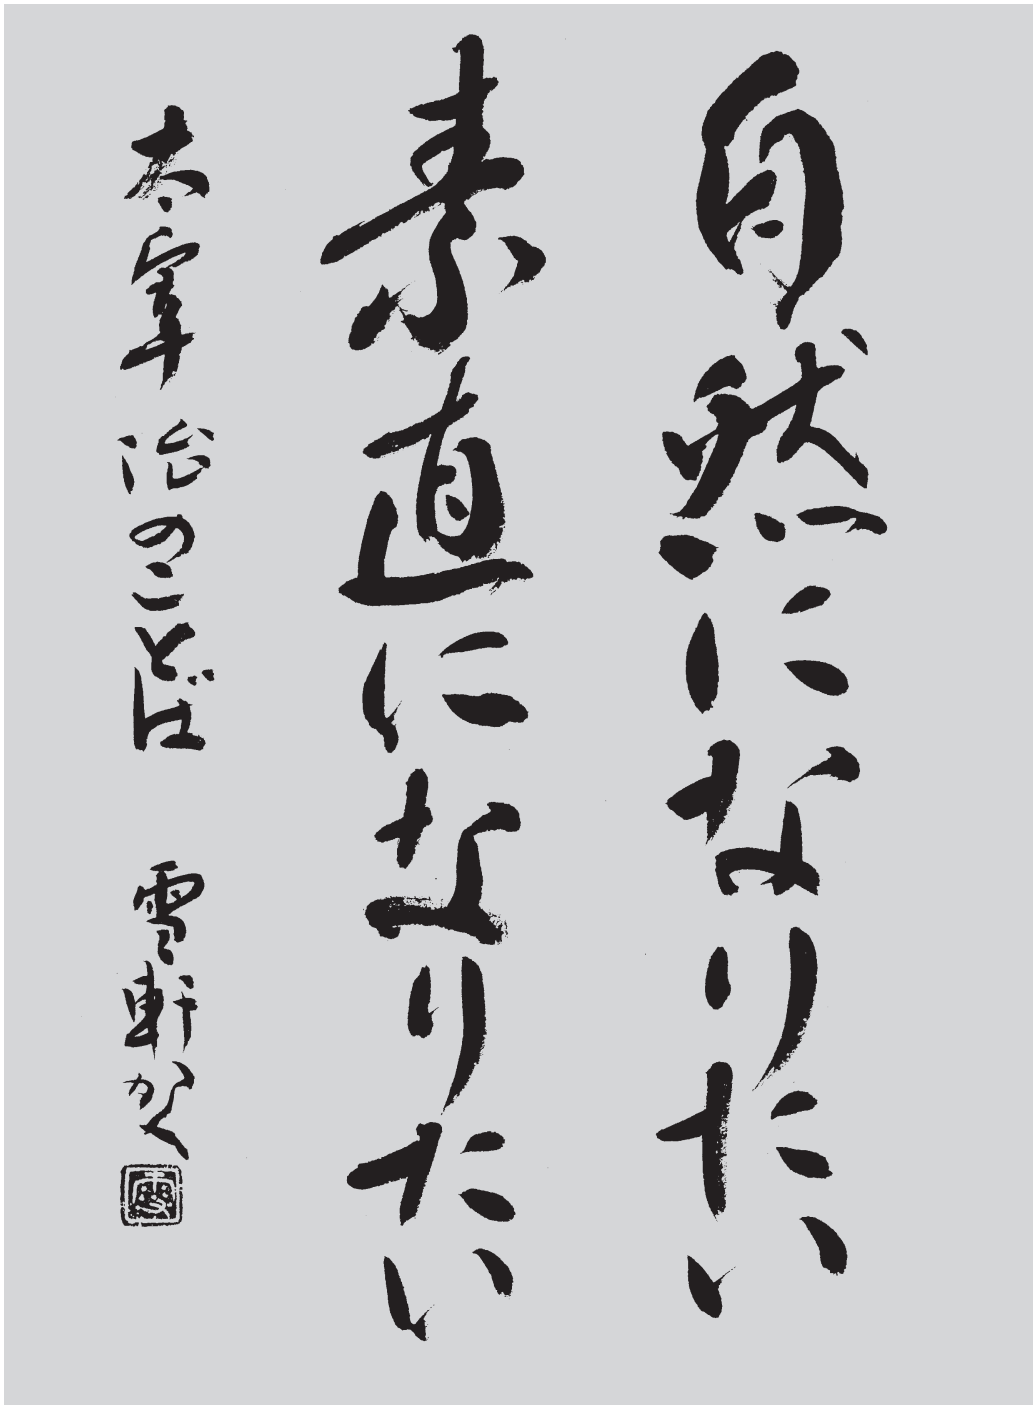 自然になりたい
素直になりたい
太宰治のことば 雪軒かく